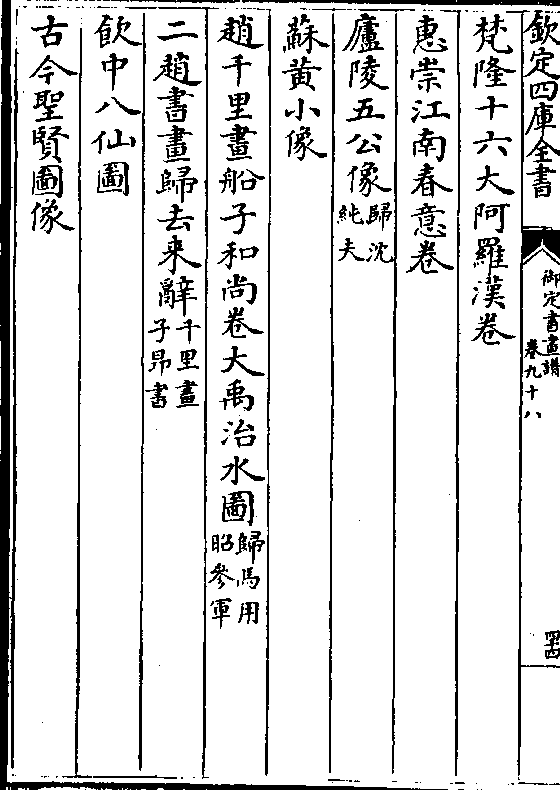 欽定四庫全書
御定書畫譜
卷九十八
四十四
梵隆十六大阿羅漢卷
惠崇江南春意卷
廬陵五公像歸沈純夫
蘇黃小像
趙千里畫船子和尚卷大禹治水圖歸馬用昭參軍
二趙書畫歸去来辭千里畫子昂書
飲中八仙圖
古今聖賢圖像